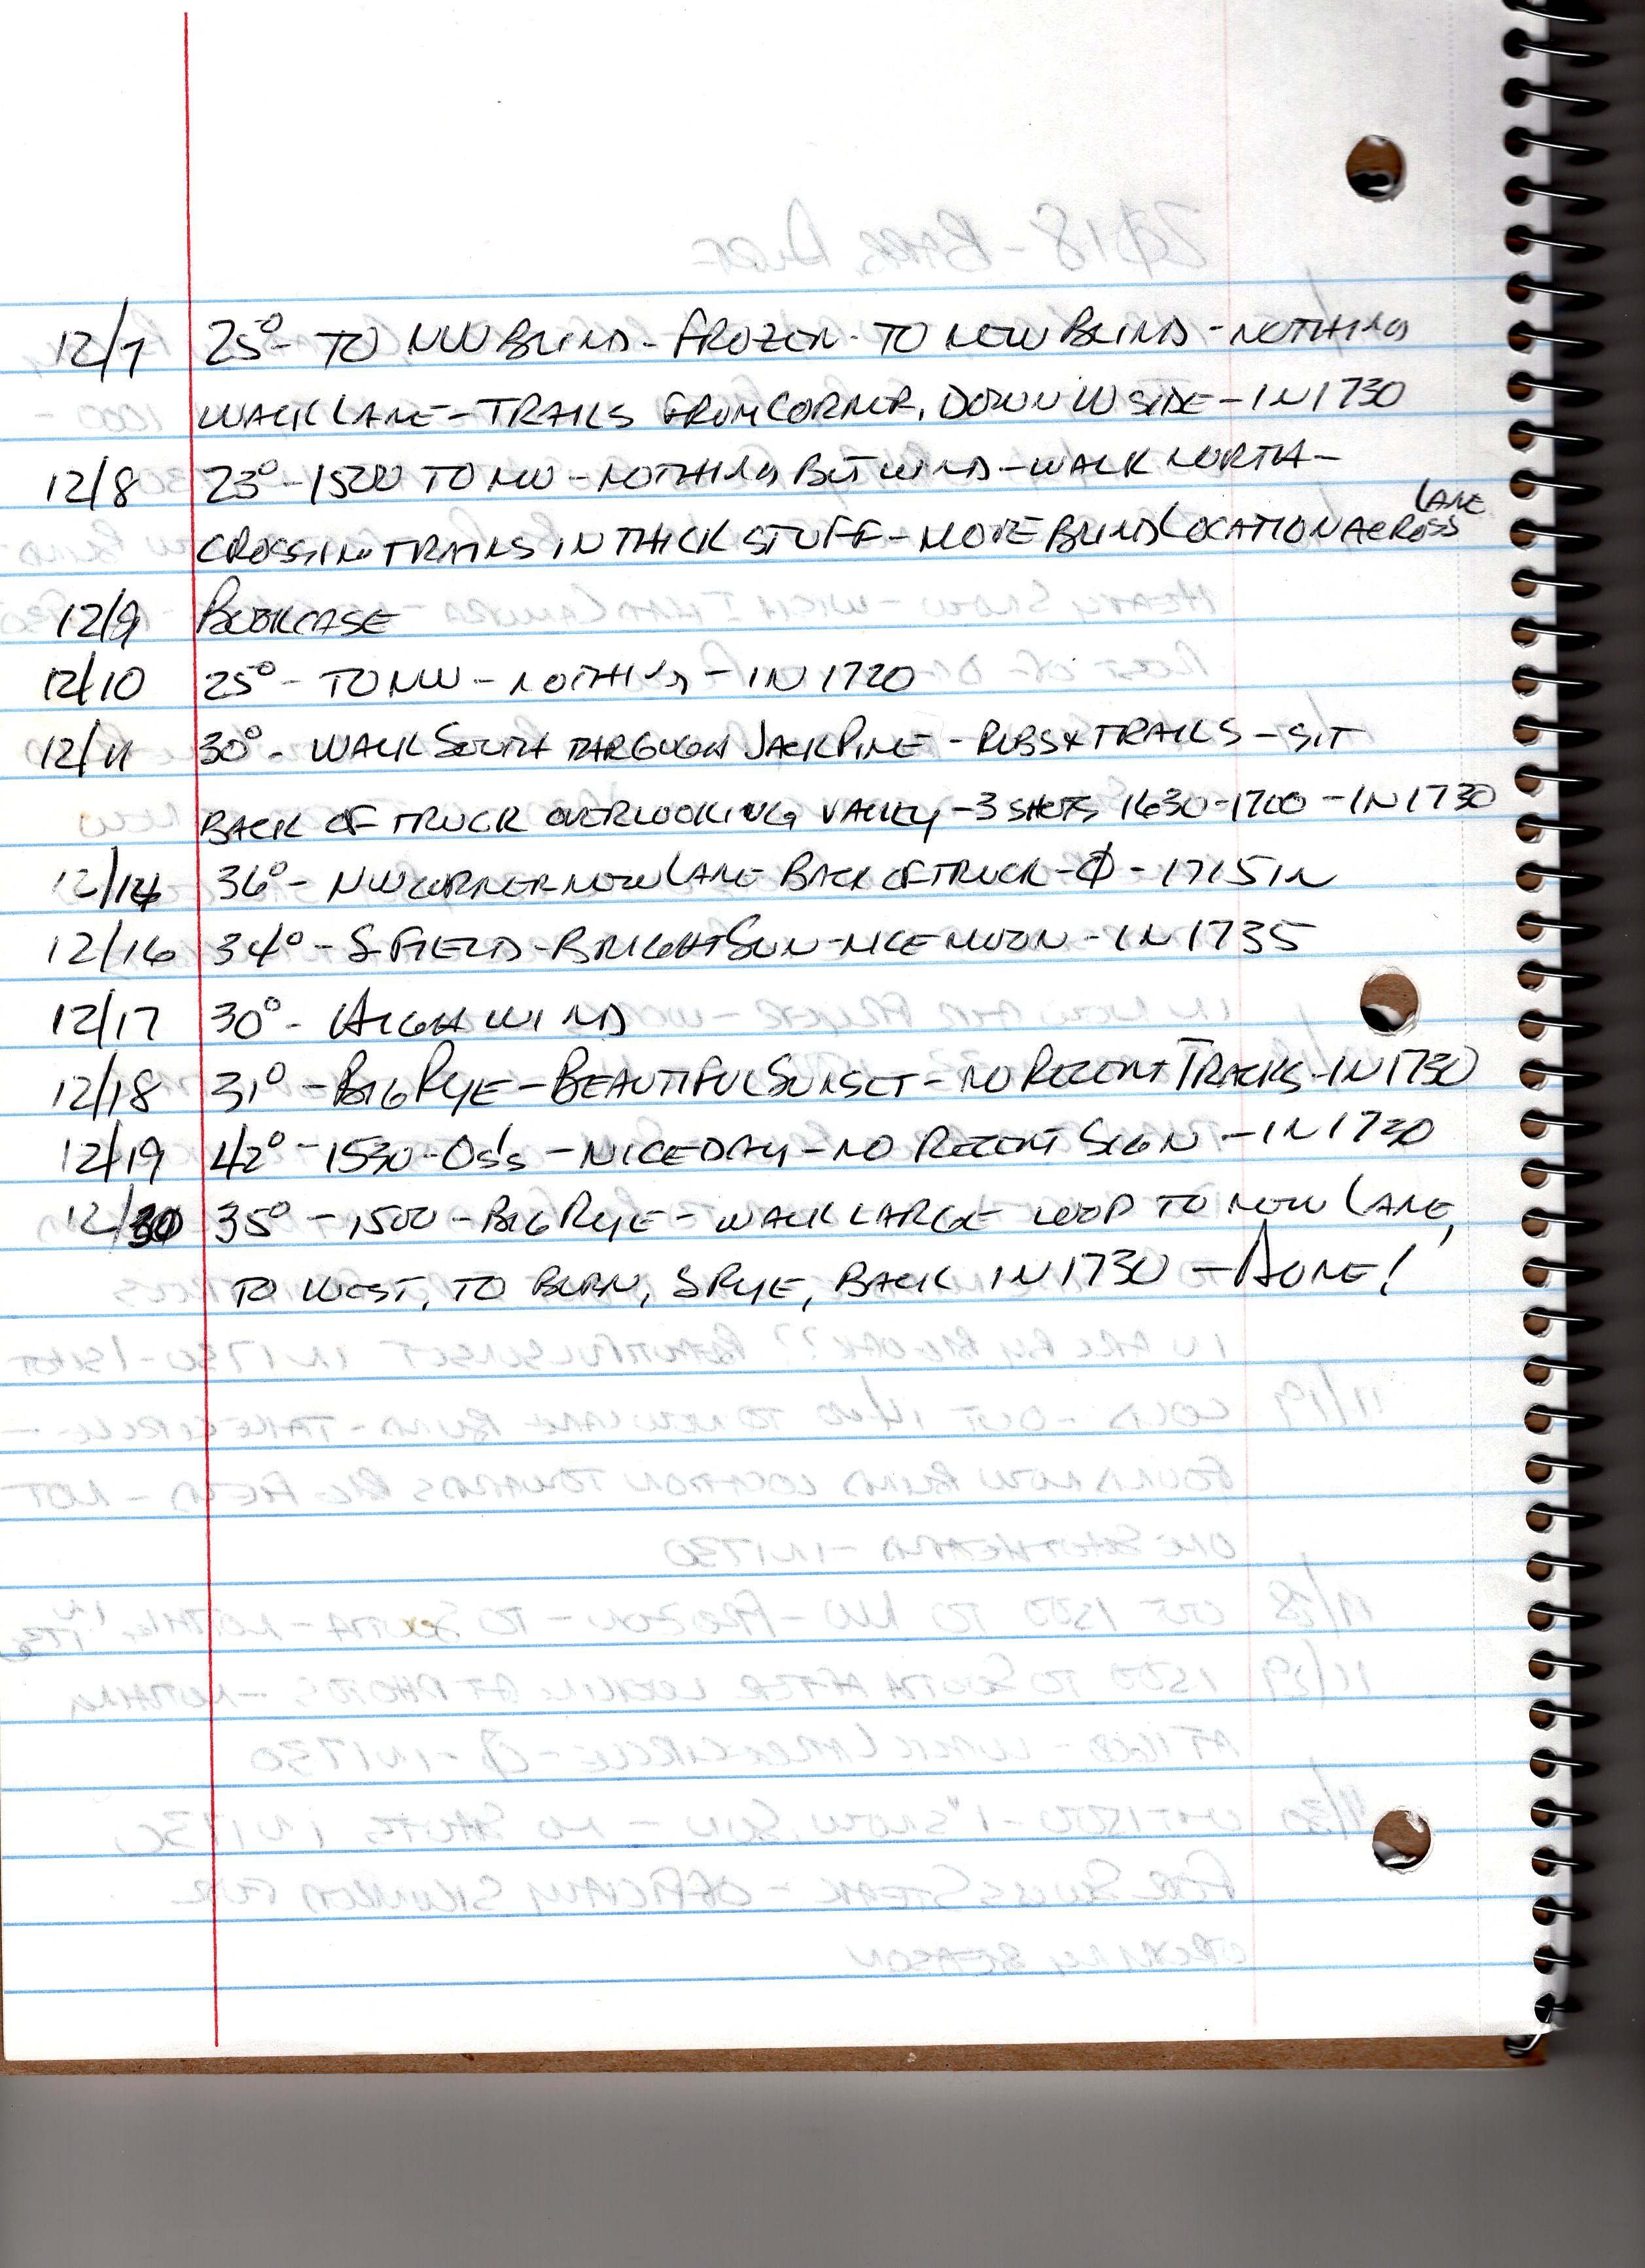 12/7 25° - TO NW BLIND - FROZEN - TO NEW BLIND - NOTHING
WALK LANE - TRAILS FROM CORNER, DOWN W SIDE - IN 1730
12/8 23° - 1500 TO NW - NOTHING BUT WIND - WALK NORTH -
CROSSING TRAILS IN THICK STUFF - MOVE BLIND LOCATION ACROSS LANE
12/9 BOOKCASE
12/10 25° - TO NW - NOTHING - IN 1720
12/11 30° - WALK SOUTH THROUGH JACK PINE - RUBS & TRAILS - SIT
BACK OF TRUCK OVERLOOKING VALLEY - 3 SHOTS 1630-1700 - IN 1730
12/14 36° - NW CORNER NEW LANE BACK OF TRUCK - Ø - 1715 IN
12/16 34° - S FIELD - BRIGHT SUN - NICE MOON - IN 1735
12/17 30° - HIGH WIND
12/18 31° - BIG RYE - BEAUTIFUL SUNSET - NO RECENT TRACKS - IN 1730
12/19 42° - 1530 - - NICE DAY - NO RECENT SIGN - IN 1730
12/30 35° - 1500 - BIG RYE - WALK LARGE LOOP TO NEW LANE,
TO WEST, TO BURN, S RYE, BACK IN 1730 - DONE!